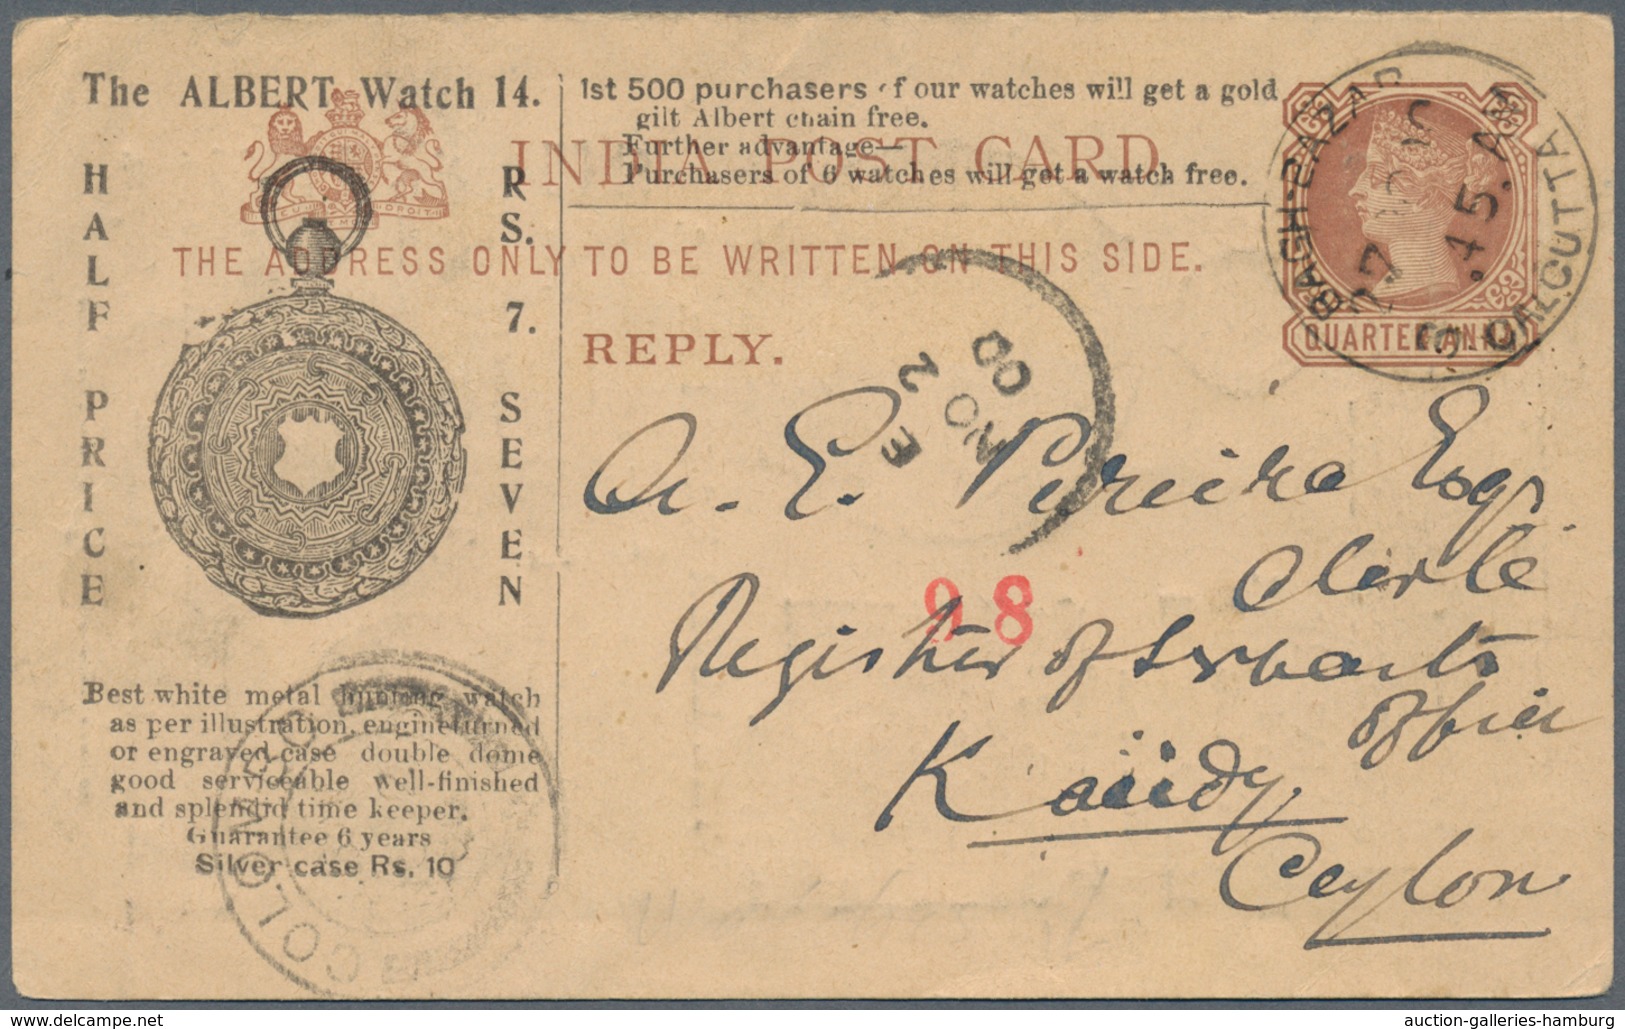 The ALBERT Watch 14.
HALF PRICE
RS. 7. SEVEN
1st 500 purchasers of our watches will get a gold
gilt Albert chain free.
Further advantage—
Purchasers of 6 watches will get a watch free.
INDIA POST CARD
THE ADDRESS ONLY TO BE WRITTEN ON THIS SIDE.
REPLY.
QUARTER ANNA
BAGH-BAZAR
CALCUTTA
.45. AM
E
2
NO
00
A. E. Pereira Esqr
Clerk
98
Register of Servants
Office
Kandy
Ceylon
Best white metal hunting watch
as per illustration, engine turned
or engraved case double dome
good serviceable well-finished
and splendid time keeper.
Guarantee 6 years
Silver case Rs. 10
COLOMBO
www.delcampe.net
auction-galleries-hamburg